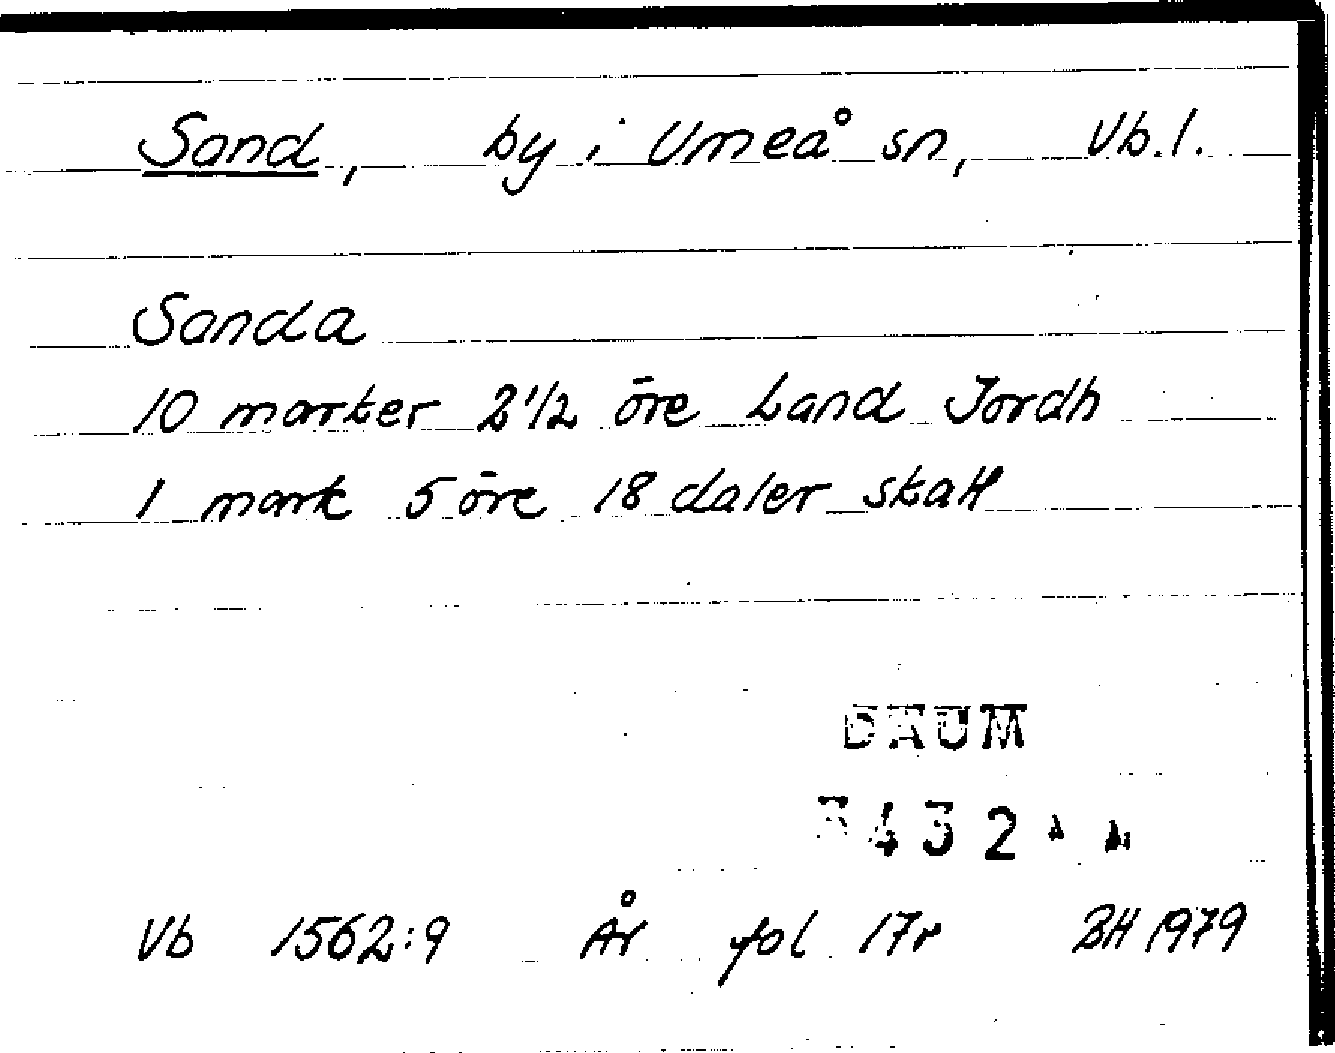 Sand, by i Umeå sn, Vb.l.
Sanda
10 marker 2 1/2 öre Land Jordh
1 mark 5 öre 18 daler skatt
DAUM
3432
Vb 1562:9 År fol 17r BH 1979